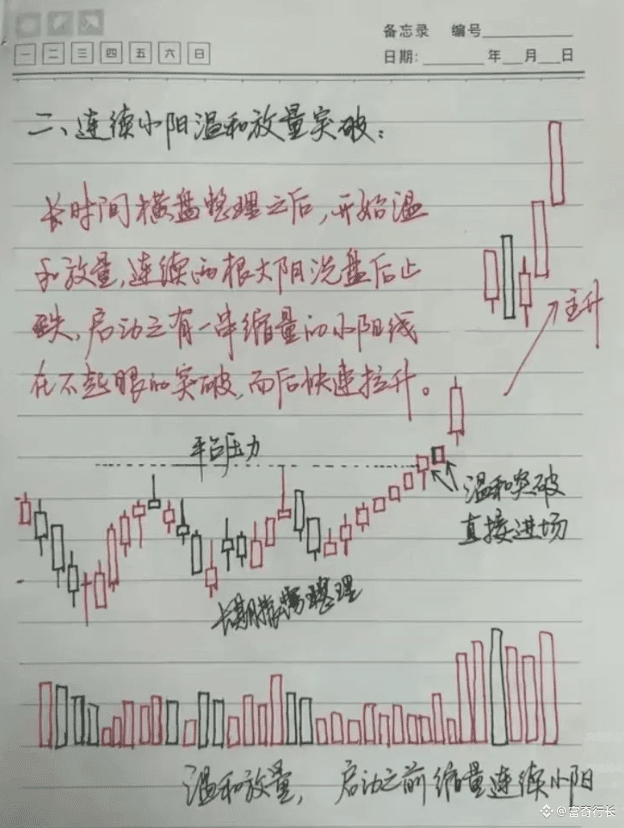 备忘录 编号
一 二 三 四 五 六 日
日期: 年 月 日
二、连续小阳温和放量突破:
长时间横盘整理之后,开始温
和放量,连续两根大阴洗盘后止
跌、启动之有一串缩量的小阳线
在不起眼的突破,而后快速拉升。
主升
平台压力
温和突破
直接进场
长期横盘整理
温和放量, 启动之前缩量连续小阳
@富奇行长